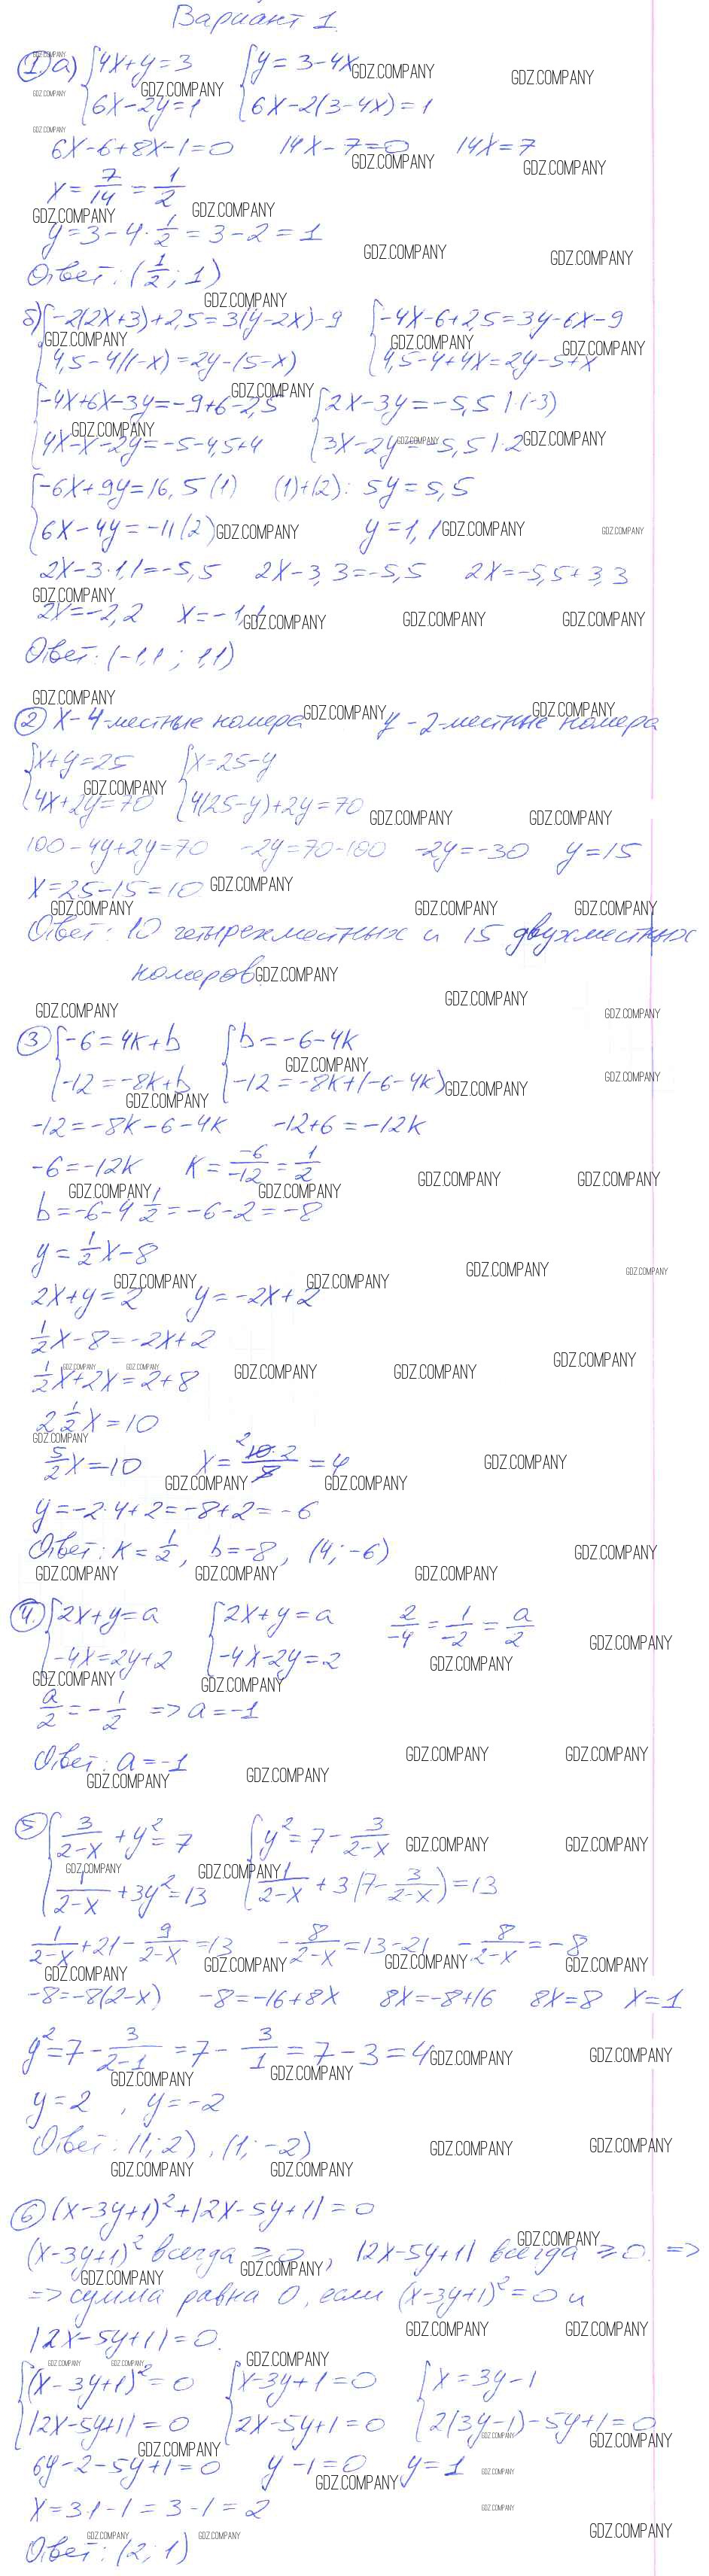 Вариант 1
① а) {4x+y=3 {y=3-4x
{6x-2y=1 {6x-2(3-4x)=1
6x-6+8x-1=0 14x-7=0 14x=7
x=7/14=1/2
y=3-4·1/2=3-2=1
Ответ: (1/2; 1)
б) {-2(2x+3)+2,5=3(y-2x)-9 {-4x-6+2,5=3y-6x-9
{4,5-4(1-x)=2y-(5-x) {4,5-4+4x=2y-5+x
{-4x+6x-3y=-9+6-2,5 {2x-3y=-5,5 |·(-3)
{4x-x-2y=-5-4,5+4 {3x-2y=-5,5 |·2
{-6x+9y=16,5 (1) (1)+(2): 5y=5,5
{6x-4y=-11 (2) y=1,1
2x-3·1,1=-5,5 2x-3,3=-5,5 2x=-5,5+3,3
2x=-2,2 x=-1,1
Ответ: (-1,1; 1,1)
② x-4-местные номера y-2-местные номера
{x+y=25 {x=25-y
{4x+2y=70 {4(25-y)+2y=70
100-4y+2y=70 -2y=70-100 -2y=-30 y=15
x=25-15=10
Ответ: 10 четырехместных и 15 двухместных
номеров.
③ {-6=4k+b {b=-6-4k
{-12=-8k+b {-12=-8k+(-6-4k)
-12=-8k-6-4k -12+6=-12k
-6=-12k k=-6/-12=1/2
b=-6-4 1/2=-6-2=-8
y=1/2x-8
2x+y=2 y=-2x+2
1/2x-8=-2x+2
1/2x+2x=2+8
2 1/2x=10
5/2x=10 x=10·2/5=4
y=-2·4+2=-8+2=-6
Ответ: k=1/2, b=-8, (4; -6)
④ {2x+y=a {2x+y=a 2/-4=1/-2=a/2
{-4x=2y+2 {-4x-2y=2
a/2=-1/2 => a=-1
Ответ: a=-1
⑤ {3/(2-x)+y²=7 {y²=7-3/(2-x)
{1/(2-x)+3y²=13 {1/(2-x)+3(7-3/(2-x))=13
1/(2-x)+21-9/(2-x)=13 -8/(2-x)=13-21 -8/(2-x)=-8
-8=-8(2-x) -8=-16+8x 8x=-8+16 8x=8 x=1
y²=7-3/(2-1)=7-3/1=7-3=4
y=2, y=-2
Ответ: (1; 2), (1; -2)
⑥ (x-3y+1)²+|2x-5y+1|=0
(x-3y+1)² всегда ≥0, |2x-5y+1| всегда ≥0. =>
=> сумма равна 0, если (x-3y+1)²=0 и
|2x-5y+1|=0.
{(x-3y+1)²=0 {x-3y+1=0 {x=3y-1
{|2x-5y+1|=0 {2x-5y+1=0 {2(3y-1)-5y+1=0
6y-2-5y+1=0 y-1=0 y=1
x=3·1-1=3-1=2
Ответ: (2; 1)
GDZ.COMPANY